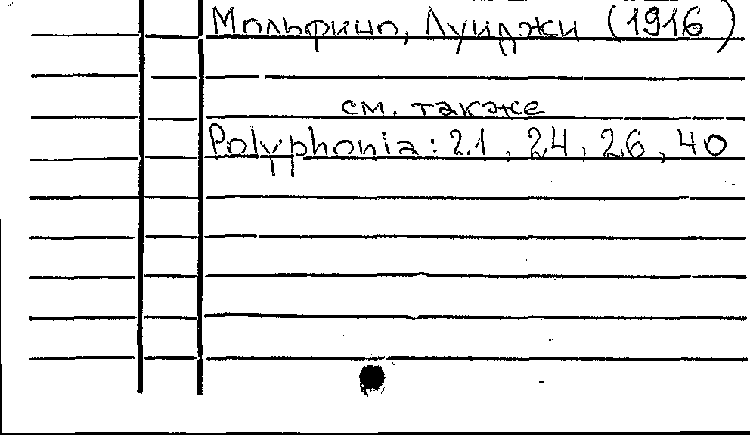 Мольфино, Луиджи (1916)
см. также
Polyphonia: 21, 24, 26, 40